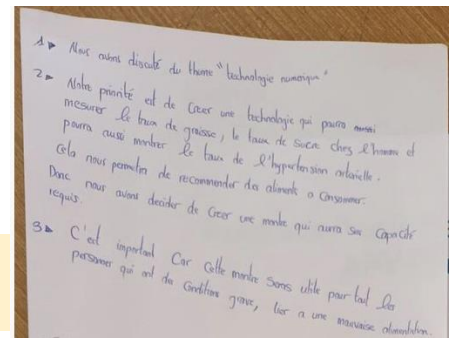 1▸ Nous avons discuté du theme "technologie numerique"
2▸ Notre priorité est de Créer une technologie qui pourra
mesurer le taux de graisse, le taux de sucre chez l'homme et
pourra aussi montrer le taux de l'hypertension artérielle.
Cela nous permettra de recommender des aliments a consommer.
Donc nous avons decider de Créer une montre qui aura ses capacité
requis.
3▸ C'est important Car cette montre seras utile pour tout les
personner qui ont des conditions grave, lier a une mauvaise alimentation.